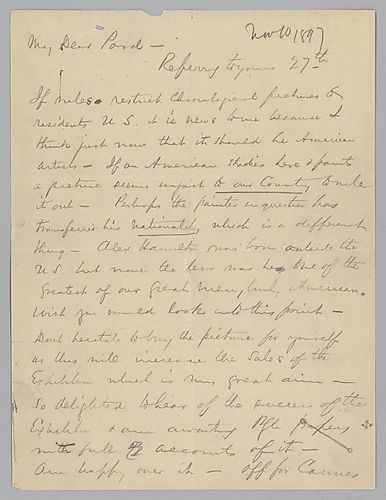 Nov 10/1897
My Dear Pard —
Referring to yours 27th
If rules restrict Chronological pictures to
residents U.S. it is news to me because I
think just now that it should be American
artists — If an American studies here & paints
a picture seems unjust to our Country to rule
it out — Perhaps the painter in question has
transferred his Nationality which is a different
thing — Alex Hamilton was born outside the
U.S. but none the less was he one of the
greatest of our great men, truly American.
Wish you would look into this point —
Dont hesitate to buy the picture for yourself
as this will increase the sales of the
Exhibition which is my great aim —
So delighted to hear of the success of the
Exhibn & am awaiting Pgh papers
with full account of it —
Am happy over it — off for Cannes